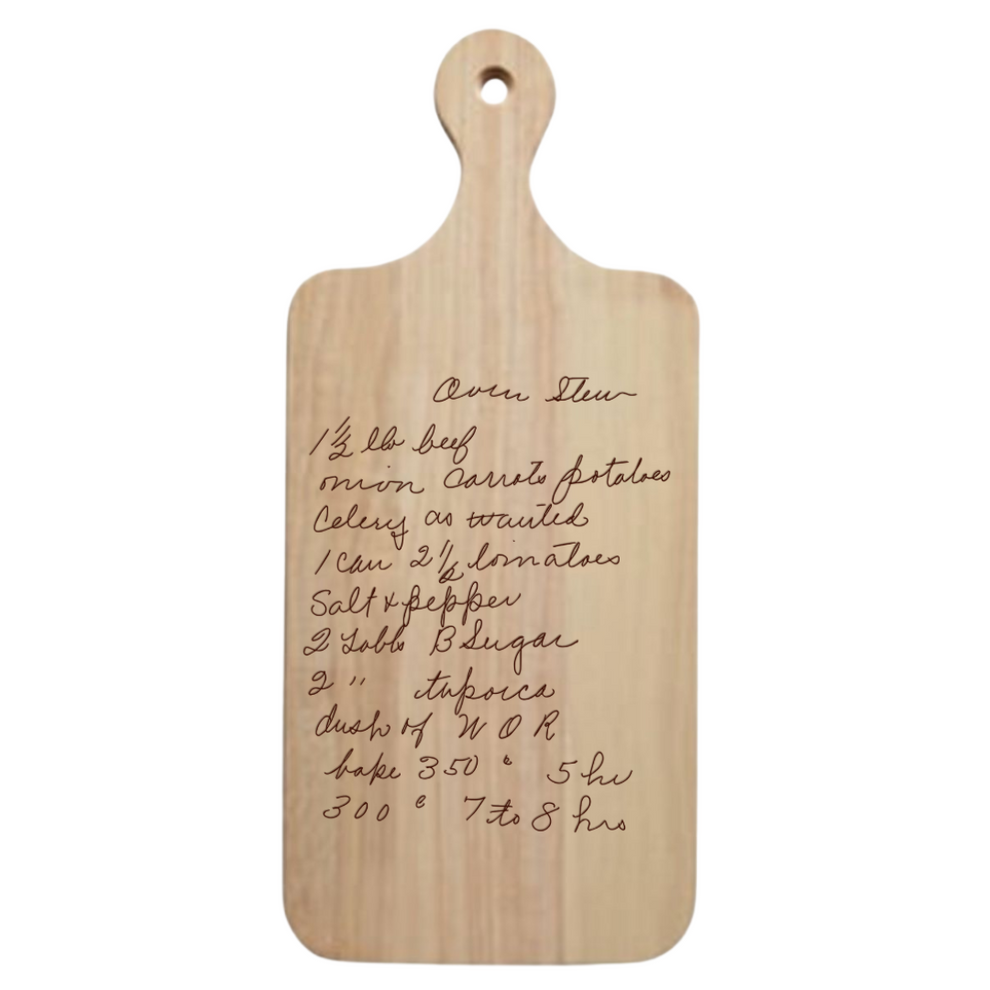 Oven Stew
1 1/2 lb beef
onion Carrots potatoes
Celery as wanted
1 can 2 1/2 tomatoes
Salt & pepper
2 Tabls B Sugar
2 " tapioca
dash of W O R
bake 350 ° 5 hr
300 ° 7 to 8 hrs